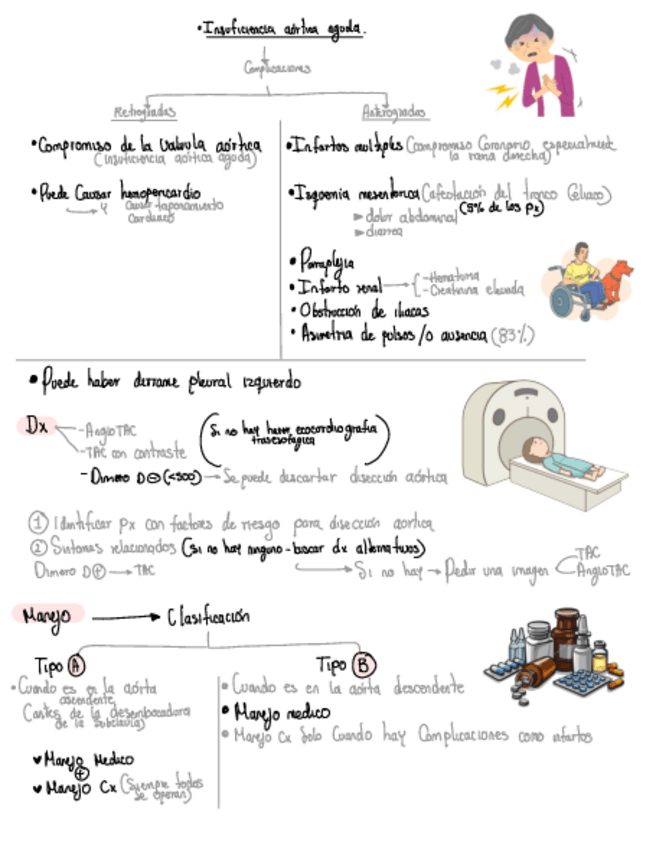 • Insuficiencia aórtica aguda.
Complicaciones
Retrogradas
Anterogradas
• Compromiso de la valvula aórtica
(insuficiencia aórtica aguda)
• Puede causar hemopericardio
y causar taponamiento
cardiaco
• Infartos multiples (compromiso coronario, especialmente
la rama derecha)
• Isquemia mesenterica (afectación del tronco celiaco)
(5% de los px)
► dolor abdominal
► diarrea
• Paraplejia
• Infarto renal
- Hematuria
- Creatinina elevada
• Obstrucción de iliacas
• Asimetria de pulsos /o ausencia (83%)
• Puede haber derrame pleural izquierdo
Dx
- AngioTAC
- TAC con contraste
(Si no hay hacer ecocardiografia
transesofagica)
- Dimero D⊖ (<500) → Se puede descartar disección aórtica
① Identificar px con factores de riesgo para disección aortica
② Sintomas relacionados (si no hay ninguno - buscar dx alternativos)
Dimero D⊕ → TAC
→ Si no hay → Pedir una imagen
TAC
AngioTAC
Manejo → Clasificación
Tipo A
• Cuando es en la aórta
ascendente
(antes de la desembocadura
de la subclavia)
Manejo Medico
+
Manejo Cx (Siempre todos
se operan)
Tipo B
• Cuando es en la aórta descendente
• Manejo medico
• Manejo Cx solo cuando hay complicaciones como infartos